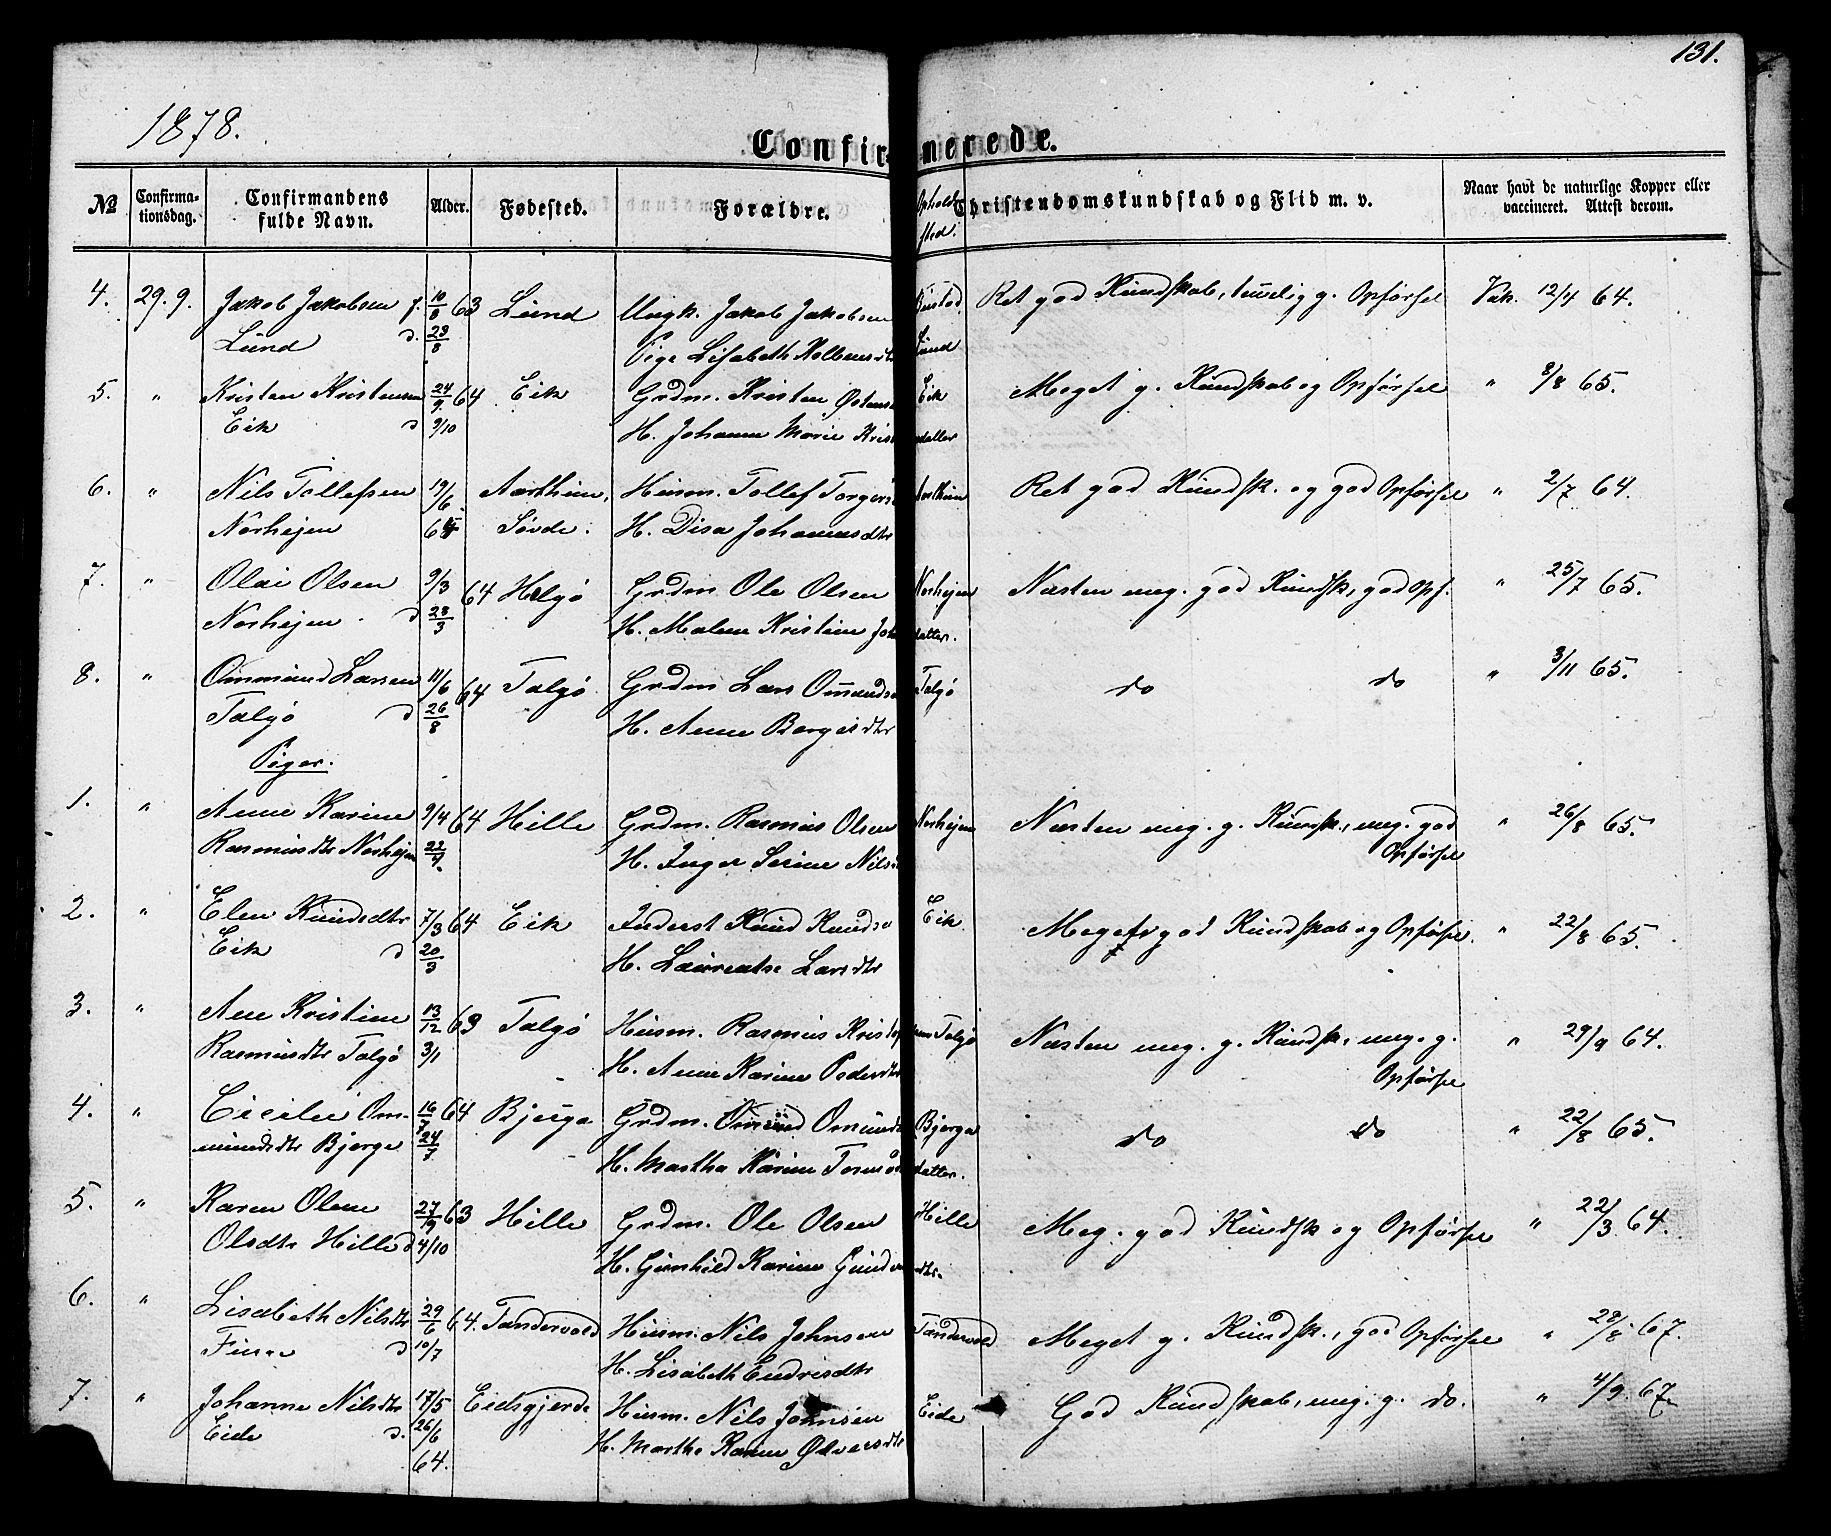 131.
1878.
Confirmerede.
No
Confirma-
tionsdag.
Confirmandens
fulde Navn.
Alder.
Fødested.
Forældre.
Opholds
sted.
Christendomskundskab og Flid m. v.
Naar havt de naturlige Kopper eller
vaccineret. Attest derom.
4. 29.9. Jakob Jakobsen f. 10/8 63 Lund Ungk. Jakob Jakobsen Ret god Kundskab, temelig g. Opførsel Vak. 12/4 64.
Lund d. 23/8 Pige Lisabeth Lund
5. " Kristen Kristensen 24/9 64 Eik Grdm. Kristen Østens Eik Meget g. Kundskab og Opførsel " 8/8 65.
Eik d 9/10 H. Johanne Marie Kristendatter
6. " Nils Tollefsen 19/6 Aartheim, Husm. Tollef Torgers Aartheim Ret god Kundsk. og god Opførsel " 2/7 64.
Norhejen 64 Søvde. H. Disa Johannesdtr
7. " Olai Olsen 9/3 64 Helgø Grdm Ole Olsen Norhejen Næsten meg. god Kundsk, god Opf. " 25/7 65.
Norhejen. d 28/3 H. Malene Kristine Johdatter.
8. " Ommund Larsen 11/6 64 Talgø Grdm Lars Omundsen Talgø do do " 3/11 65.
Talgø d 26/8 H. Anne Borgesdtr
Piger.
1. " Anne Karine 9/4 64 Hille Grdm. Rasmus Olsen Norhejen Næsten meg. g. Kundsk., meg. god " 26/8 65.
Rasmusdtr Norhejen 22/4. H. Inger Serine Nils Opførsel
2. " Elen Knudsdtr 7/3 64 Eik Inderst Knud Knudse Eik Meget god Kundskab og Opførsel. " 22/8 65.
Eik d 20/3 H. Laureatse Larsdtr
3. " Ane Kristine 13/12 63 Talgø Husm. Rasmus Kristofersen Talgø Næsten meg. g. Kundsk, meg. g. " 29/9 64.
Rasmusdtr Talgø 3/1 H. Anne Karine Pedersdtr Opførsel
4. " Cicilie Om- 16/7 64 Bjerga Grdm. Omund Omunds Bjerga do do " 22/8 65.
mundsdtr Bjerge 24/7 H. Martha Karine Tormodatter.
5. " Karen Oline 27/9 63 Hille Grdm. Ole Olsen Hille Meg. god Kundsk og Opførsel " 22/3 64.
Olsdtr Hille d 4/10 H. Gunhild Karine Gundersdtr.
6. " Lisabeth Nilsdtr 29/6 64. Tandervold Husm. Nils Johnsen Tandervold Meget g. Kundsk., god Opførsel " 28/8 67.
Finne d 10/7 H. Lisabeth Endresdtr
7. " Johanne Nilsdtr 17/5 Eidsgjerde Husm. Nils Johnsen Eide God Kundskab, meg. g. do. " 4/9 67.
Eide d. 26/6 H. Marthe Karine Ølversdtr
64.